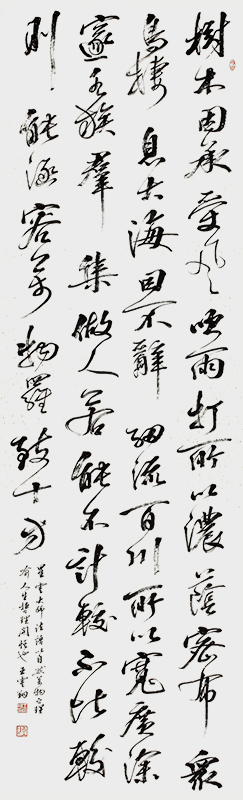 樹木因承受風吹雨打所以濃蔭密布衆
鳥棲息大海因不辭細流百川所以寬廣深
邃水族羣集做人若能不計較不比較
則能涵容萬物羅致十方
星雲大師法語以自然萬物之理
喻人生哲理開悟也王雲